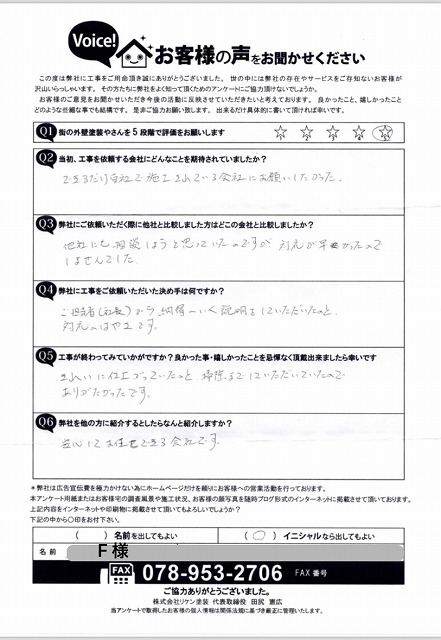 Voice!
お客様の声をお聞かせください
この度は弊社に工事をご用命頂き誠にありがとうございました。世の中には弊社の存在やサービスをご存知ないお客様が
沢山いらっしゃいます。その方たちに弊社をよく知って頂くためのアンケートにご協力頂けないでしょうか。
お客様のご意見をお聞かせいただき今後の活動に反映させていただきたいと考えております。良かったこと、嬉しかったこと
どのような些細な事でも結構です。是非ご協力お願い致します。出来るだけ具体的に書いて頂ければ幸いです。
Q1 街の外壁塗装やさんを5段階で評価をお願いします
1 2 3 4 5
Q2 当初、工事を依頼する会社にどんなことを期待されていましたか?
できるだけ自社で施工されている会社にお願いしたかった。
Q3 弊社にご依頼いただく際に他社と比較しました方はどこの会社と比較しましたか?
他社にも相談しようと思っていたのですが 対応が早かったので
しませんでした。
Q4 弊社に工事をご依頼いただいた決め手は何ですか?
ご担当者(社長)から納得のいく説明をしていただいたのと、
対応のはやさです。
Q5 工事が終わってみていかがですか?良かった事・嬉しかったことを忌憚なく頂戴出来ましたら幸いです
きれいに仕上がっていたのと 掃除までしていただいていたので
ありがたかったです。
Q6 弊社を他の方に紹介するとしたらなんと紹介しますか?
安心してお任せできる会社です。
*弊社は広告宣伝費を極力かけない為にホームページだけを頼りにお客様への営業活動を行っております。
本アンケート用紙またはお客様宅の調査風景や施工状況、お客様の顔写真を随時ブログ形式のインターネットに掲載させて頂いております。
上記内容をインターネットや印刷物に掲載させて頂いてもよろしいでしょうか?
下記の中から○印をお付下さい。
( )名前を出してもよい
(○)イニシャルなら出してもよい
名前 F様
FAX 078-953-2706 FAX番号
ご協力ありがとうございました。
株式会社リケン塗装 代表取締役 田尻 憲広
当アンケートで取得したお客様の個人情報は関係法規に基づき厳正に管理いたします。